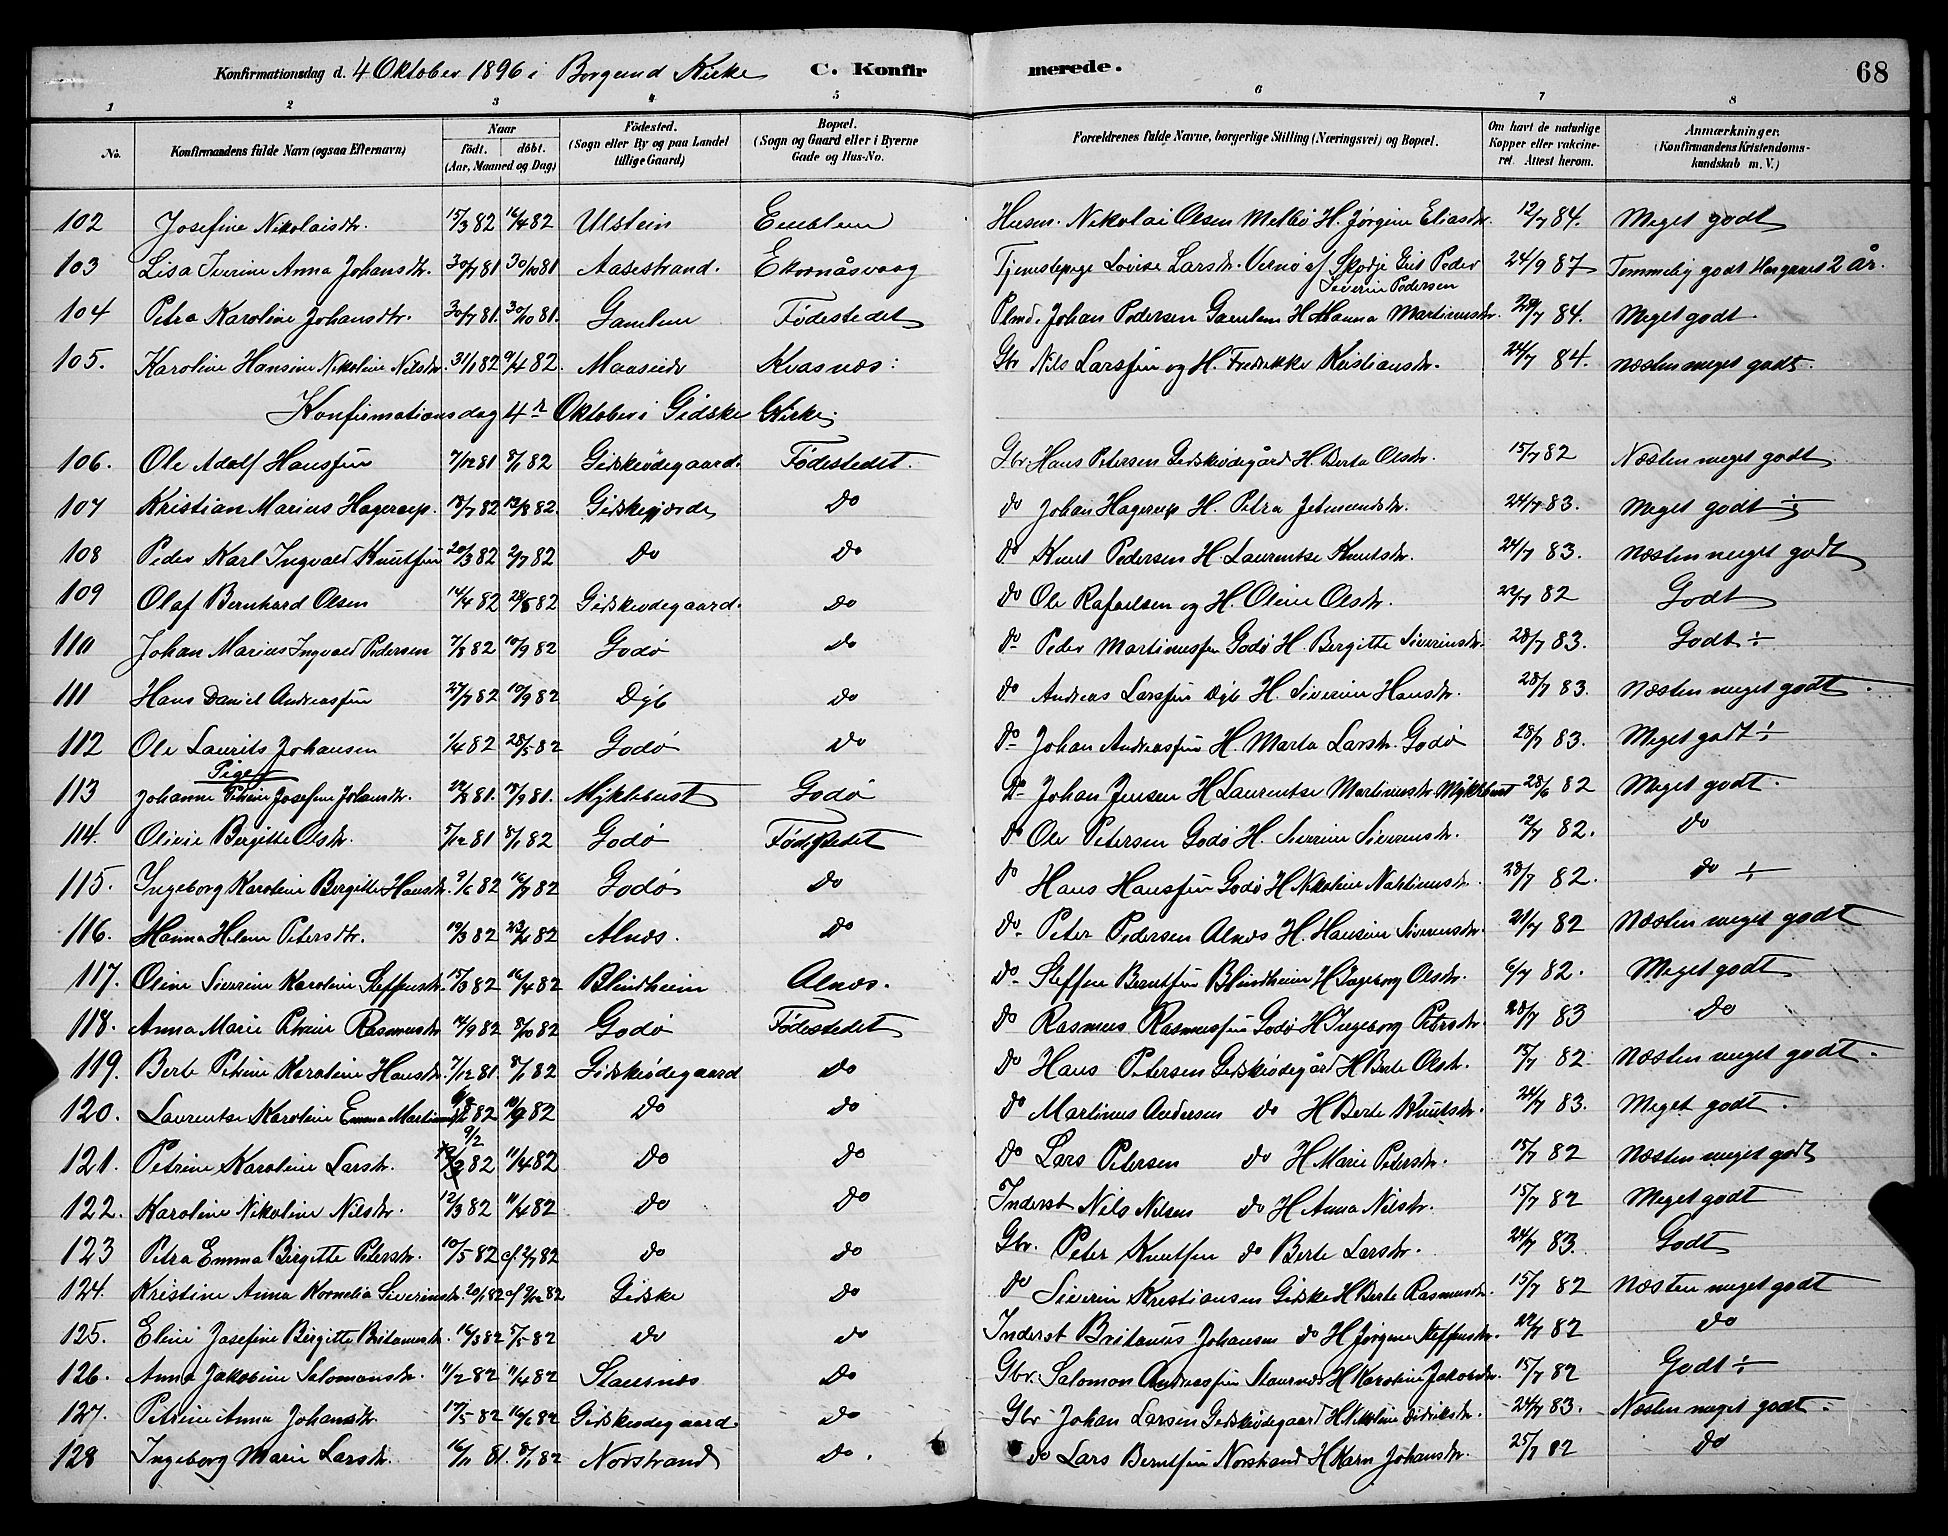 Konfirmationsdag d. 4 Oktober 1896 i Borgund Kirke C. Konfirmerede. 68
1 2 3 4 5 6 7 8
No. Konfirmandens fulde Navn (ogsaa Efternavn) Naar født. døbt. (Aar, Maaned og Dag) Fødested. (Sogn eller By og paa Landet tillige Gaard) Bopæl. (Sogn og Gaard eller i Byerne Gade og Hus-No. Forældrenes fulde Navne, borgerlige Stilling (Næringsvei) og Bopæl. Om havt de naturlige Kopper eller vakcineret. Attest herom. Anmærkninger. (Konfirmandens Kristendomskundskab m. V.)
102 Josefine Nikolaisdtr. 15/3 82 16/4 82 Ulstein Emblem Husm. Nikolai Olsen Melbø H. Jørgine Eliasdtr. 12/7 84. Meget godt
103 Lisa Iverine Anna Johansdtr. 30/7 81 30/10 81 Aasestrand. Ekornåsvaag Tjenestepige Lovise Larsdtr. Vernø af Skodje Gift Peder Severin Pedersen 24/9 87 Temmelig godt 2 år.
104 Petra Karoline Johansdtr. 30/7 81. 30/10 81. Gamlem Fødestedet Plmd. Johan Pedersen Gamlem H. Hanna Martinusdtr. 29/7 84. Meget godt
105. Karoline Hansine Nikoline Nilsdtr. 31/1 82 9/4 82. Maaseide Kvasnes: Gbr Nils Larssen og H. Fredrikke Kristiansdtr. 24/7 84. Næsten meget godt.
Konfirmationsdag 4de Oktober i Gidske Kirke
106. Ole Adolf Hanssen 7/12 81 8/1 82 Gidskeødegaard. Fødestedet. Gbr Hans Petersen Gidskeødegård H. Berta Olsdtr. 15/7 82 Næsten meget godt
107 Kristian Marius Hagerup. 13/7 82 13/8 82. Gidskegjerde do do Johan Hagerup H. Petra Jetmundsdtr. 24/7 83. Meget godt ÷
108 Peder Karl Ingvald Knutsen 20/3 82 2/7 82 do do do Knut Pedersen H. Laurentse Knutsdtr. 24/7 83. Næsten meget godt
109 Olaf Bernhard Olsen 14/4 82 28/5 82 Gidskeødegaard. do do Ole Rafaelsen og H. Oline Olsdtr. 22/7 82 Godt
110 Johan Marius Ingvald Pedersen 7/8 82 10/9 82 Godø do do Peder Martinussen Godø H. Bergitte Siverinsdtr. 28/7 83. Godt ÷
111 Hans Daniel Andreassen 27/7 82 10/9 82 Dyb do do Andreas Larssen Dyb H. Siverine Hansdtr. 28/7 83. Næsten meget godt.
112 Ole Laurits Johansen 1/4 82 28/5 82 Godø do do Johan Andreassen H. Marta Larsdtr. Godø 28/7 83. Meget godt ÷
Piger
113 Johanne Petrine Josefine Johansdtr. 22/8 81. 18/9 81. Myklebust Godø do Johan Jensen H Laurentse Martinusdtr Myklebust 28/6 82 Meget godt.
114. Olivie Bergitte Olsdtr. 5/12 81 8/1 82 Godø Fødestedet do Ole Petersen Godø H. Siverine Siverinsdtr. 12/7 82. do
115. Ingeborg Karoline Bergitte Hansdtr. 9/6 82 16/7 82 Godø do do Hans Hanssen Godø H Nikoline 28/7 82. do ÷
116. Hanna Helene Petersdtr. 19/3 82 23/4 82 Alnes. do do Peter Pedersen Alnes H. Hansine Siverinsdtr. 21/7 82 Næsten meget godt
117. Oline Siverine Karoline Steffensdtr. 15/3 82 16/4 82 Blindheim Alnes. do Steffen Berntsen Blindheim H Ingeborg Olsdtr. 6/7 82. Meget godt
118. Anna Marie Petrine Rasmusdtr 14/9 82 8/10 82 Godø Fødestedet do Rasmus Rasmussen Godø H Ingeborg Petersdtr. 28/7 83 do
119. Berte Petrine Karoline Hansdtr. 7/12 81. 8/1 82 Gidskeødegaard do do Hans Petersen Gidskeødegård H Berte Olsdtr. 15/7 82 Næsten meget godt.
120. Laurentse Karoline Emma Martinusdtr 82 10/9 82 do do do Martinus Andersen do H Berte Knutsdtr. 24/7 83. Meget godt.
121. Petrine Karoline Larsdtr. 9/2 82 11/4 82 do do do Lars Petersen do H Marie Petersdtr. 15/7 82 Næsten meget godt
122. Karoline Nikoline Nilsdtr. 12/3 82 11/4 82 do do Inderst Nils Nilsen do H Anna Nilsdtr. 15/7 82 Meget godt
123 Petra Emma Birgitte Petersdtr. 10/5 82 cf. 2/7 82 do do Gbr. Peter Knutsen do Berte Larsdtr. 24/7 83. Godt
124. Kristine Anna Kornelia Siverinsdtr. 20/1 82 cf 9/4 82 Gidske do do Siverin Kristiansen Gidske H Berte Rasmusdtr. 15/7 82 Næsten meget godt
125. Eline Josefine Birgitte Britanusdtr. 16/3 82 5/5 82 do do Inderst Britanus Johansen do H Jørgine Steffensdtr. 22/7 82 do
126. Anna Jakobine Salomonsdtr. 11/2 82 11/4 82 Staurnes do Gbr. Salomon Andreassen Staurnes H Karoline Jakobsdtr. 15/7 82 Godt ÷
127. Petrine Anna Johansdtr. 17/5 82 16/6 82 Gidskeødegaard. do Gbr Johan Larsen Gidskeødegaard H Nikoline Didriksdtr. 24/7 83. Næsten meget godt.
128 Ingeborg Marie Larsdtr. 16/11 81. 8/1 82 Norstrand do. do Lars Berntsen Norstrand H Karn Johansdtr. 25/7 82 do